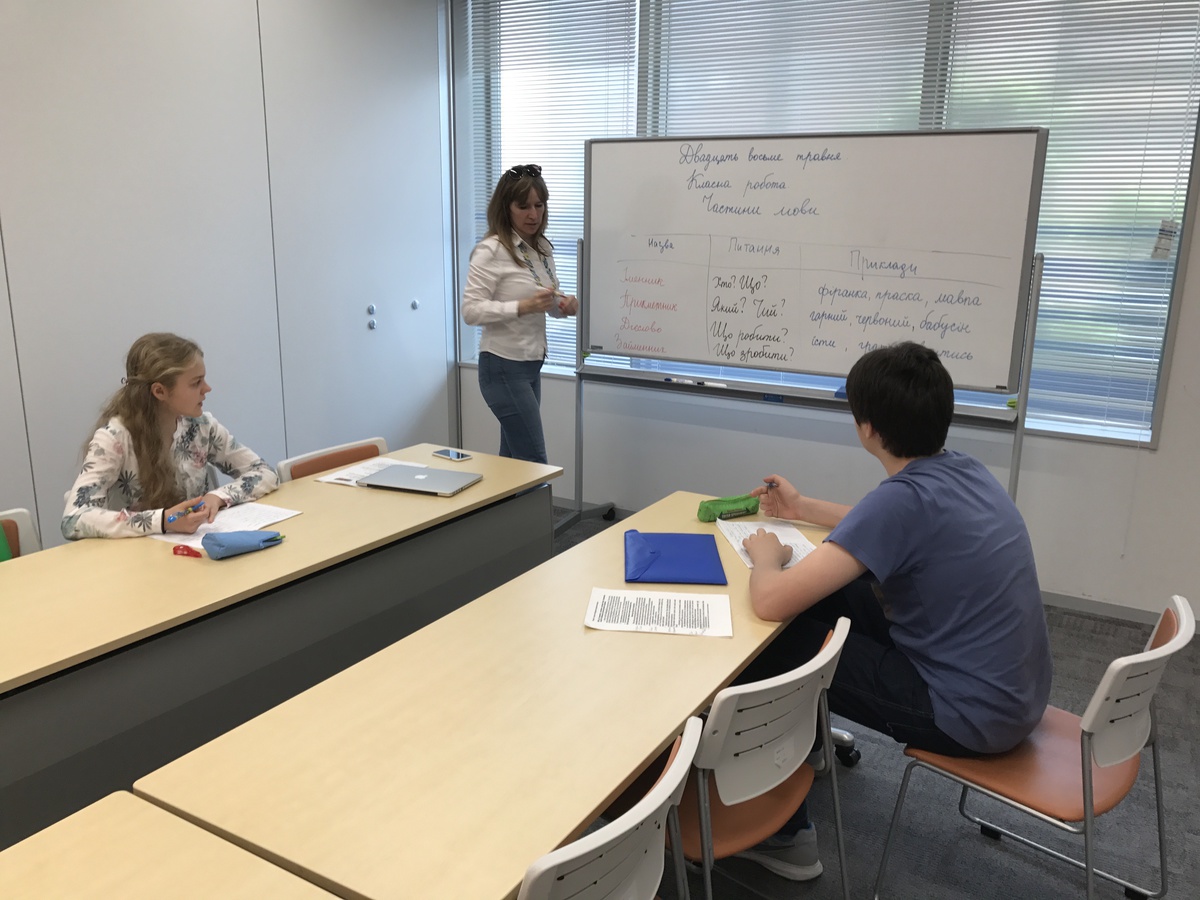 Двадцять восьме травня
Класна робота
Частини мови
Назва Питання Приклади
Іменник Хто? Що? фіранка, праска, мавпа
Прикметник Який? Чий? гарний, червоний, бабусін
Дієслово Що робити? їсти,
Займенник Що зробити?